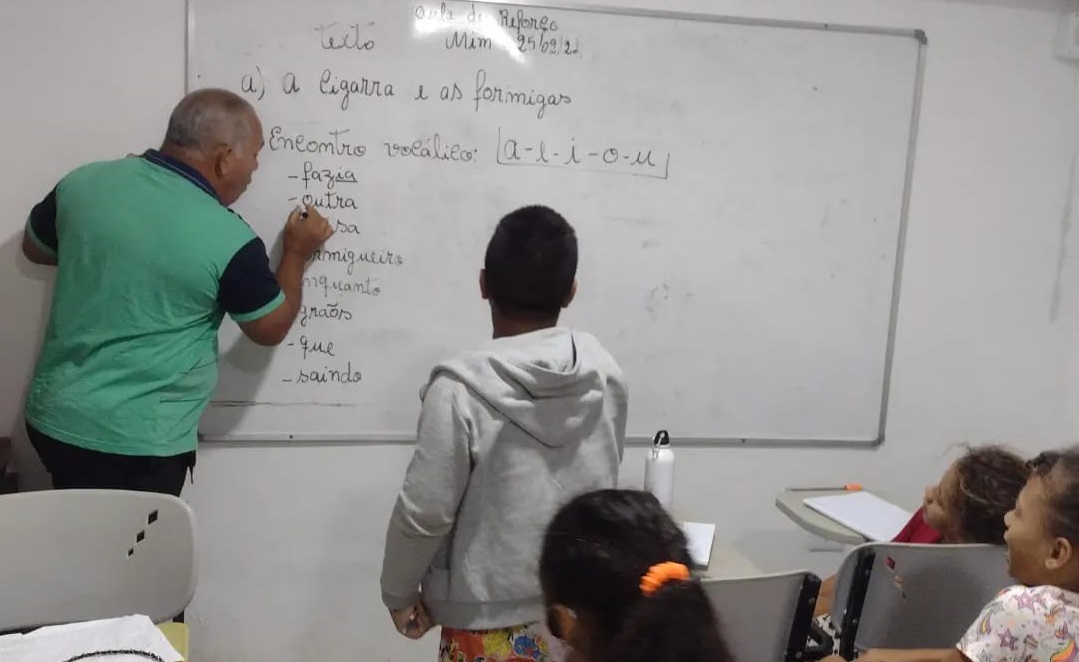 Aula de Reforço
Texto Mim 25/02/22
a) A Cigarra e as formigas
Encontro vocálico: a-e-i-o-u
- fazia
- outra
sa
rmigueiro
nquanto
grãos
- que
- saindo